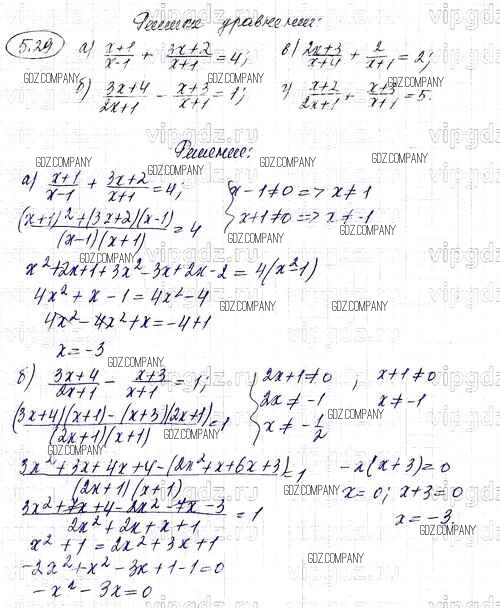 Решить уравнения:
5.29 а) (x+1)/(x-1) + (3x+2)/(x+1) = 4; в) (2x+3)/(x+4) + 2/(x+1) = 2;
б) (3x+4)/(2x+1) - (x+3)/(x+1) = 1; г) (x+2)/(2x+1) + (x+3)/(x+1) = 5.
Решение:
а) (x+1)/(x-1) + (3x+2)/(x+1) = 4; { x-1≠0 => x≠1
((x+1)²+(3x+2)(x-1))/((x-1)(x+1)) = 4 x+1≠0 => x≠-1
x²+2x+1+3x²-3x+2x-2 = 4(x²-1)
4x²+x-1=4x²-4
4x²-4x²+x=-4+1
x=-3
б) (3x+4)/(2x+1) - (x+3)/(x+1) = 1; { 2x+1≠0 ; x+1≠0
2x≠-1 x≠-1
((3x+4)(x+1)-(x+3)(2x+1))/((2x+1)(x+1)) = 1 x≠-1/2
(3x²+3x+4x+4-(2x²+x+6x+3))/((2x+1)(x+1)) = 1 -x(x+3)=0
(3x²+7x+4-2x²-7x-3)/(2x²+2x+x+1) = 1 x=0; x+3=0
x=-3
x²+1=2x²+3x+1
-2x²+x²-3x+1-1=0
-x²-3x=0
GDZ.COMPANY
vipgdz.ru